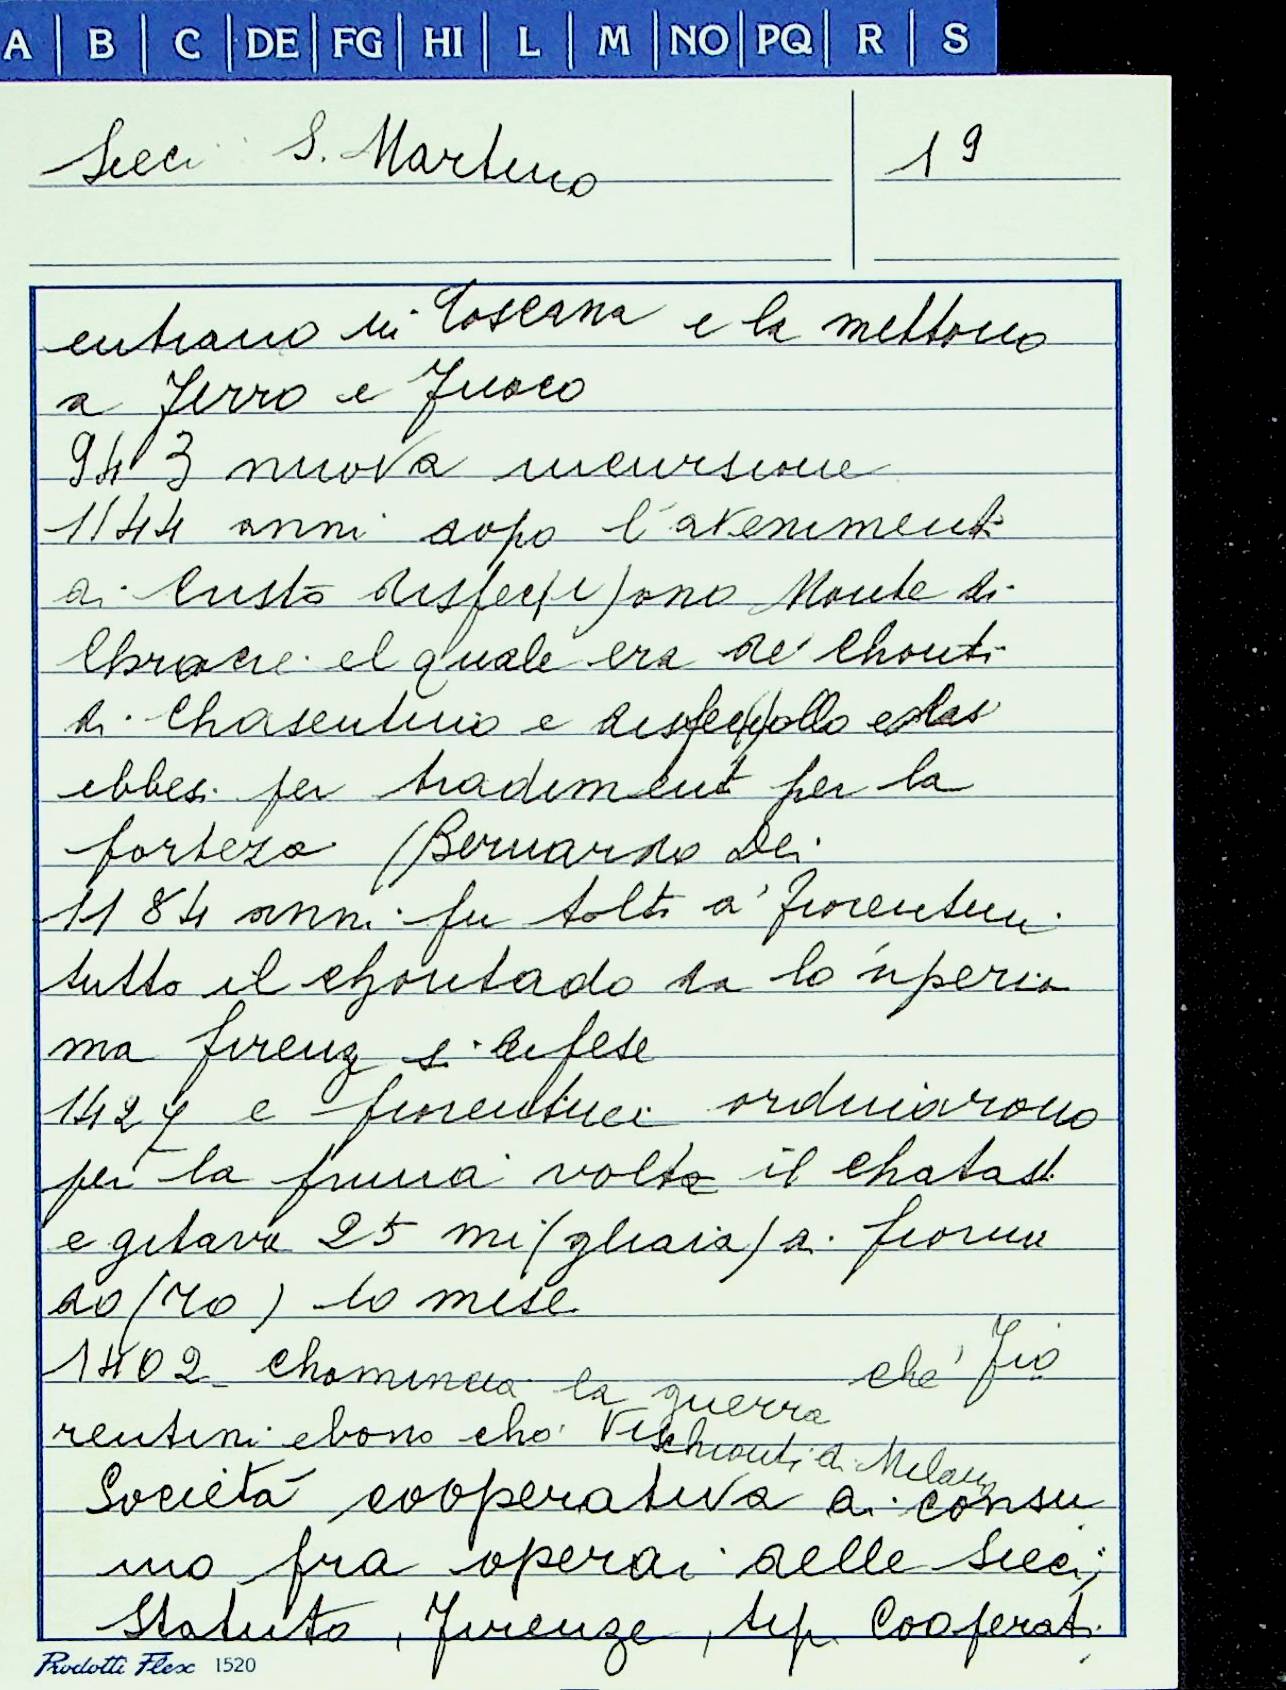 A B C DE FG HI L M NO PQ R S
Sieci S. Martino 19
entrano in Toscana e la mettono
a Ferro e Fuoco
943 nuova incursione
1144 anni dopo l'aveniment
di Cristo disfec(i)ono Monte di
Chroce el quale era de' Chonti
di Chasentino e disfec(i)ollo e
ebbesi per tradiment per la
forteza (Bernardo Dei
1184 anni fu tolto a' Fiorentini
tutto il chontado da lo 'nperio
ma firenz si difese
1427 e fiorentini ordinarono
per la prima volta il chatast
e gitava 25 mi(gliaia) di fiorini
do(ro) lo mese
1402 chomincia la guerra che' Fio
rentini ebono cho' Vischonti di Milano
Società cooperativa di consu
mo fra operai delle Sieci;
Statuto, Firenze, tip. Cooperati
Prodotti Flex 1520